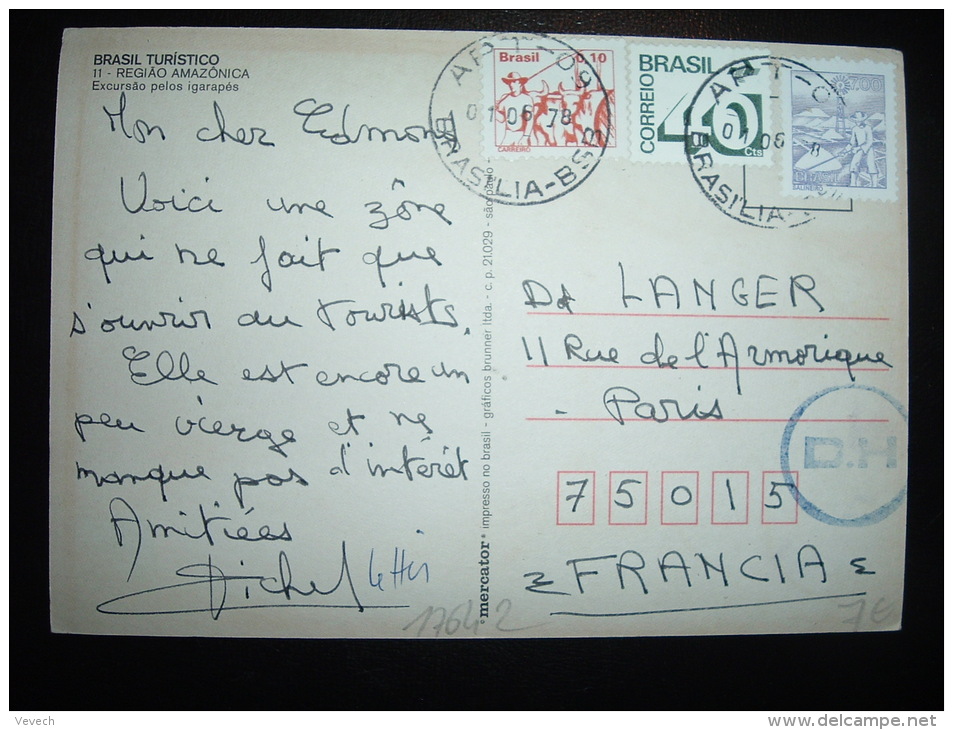 BRASIL TURÍSTICO
11 - REGIÃO AMAZÔNICA
Excursão pelos igarapés
Mon cher Edmond
Voici une zône
qui ne fait que
s'ouvrir au tourists.
Elle est encore un
peu vierge et ne
manque pas d'intérêt
Amitiées
Michel
mercator® impresso no brasil - gráficos brunner ltda. - c. p. 21.029 - são paulo
Brasil 0,10
CARREIRO
BRASIL
CORREIO
40
Cts
7,00
BRASIL
SALINEIRO
01 06 78
BRASÍLIA-BSB
01 06 8
BRASÍLIA
Dr LANGER
11 Rue de l'Armorique
- Paris
75015
FRANCIA
D.H
17642
7€
Vevech
delcampe.net